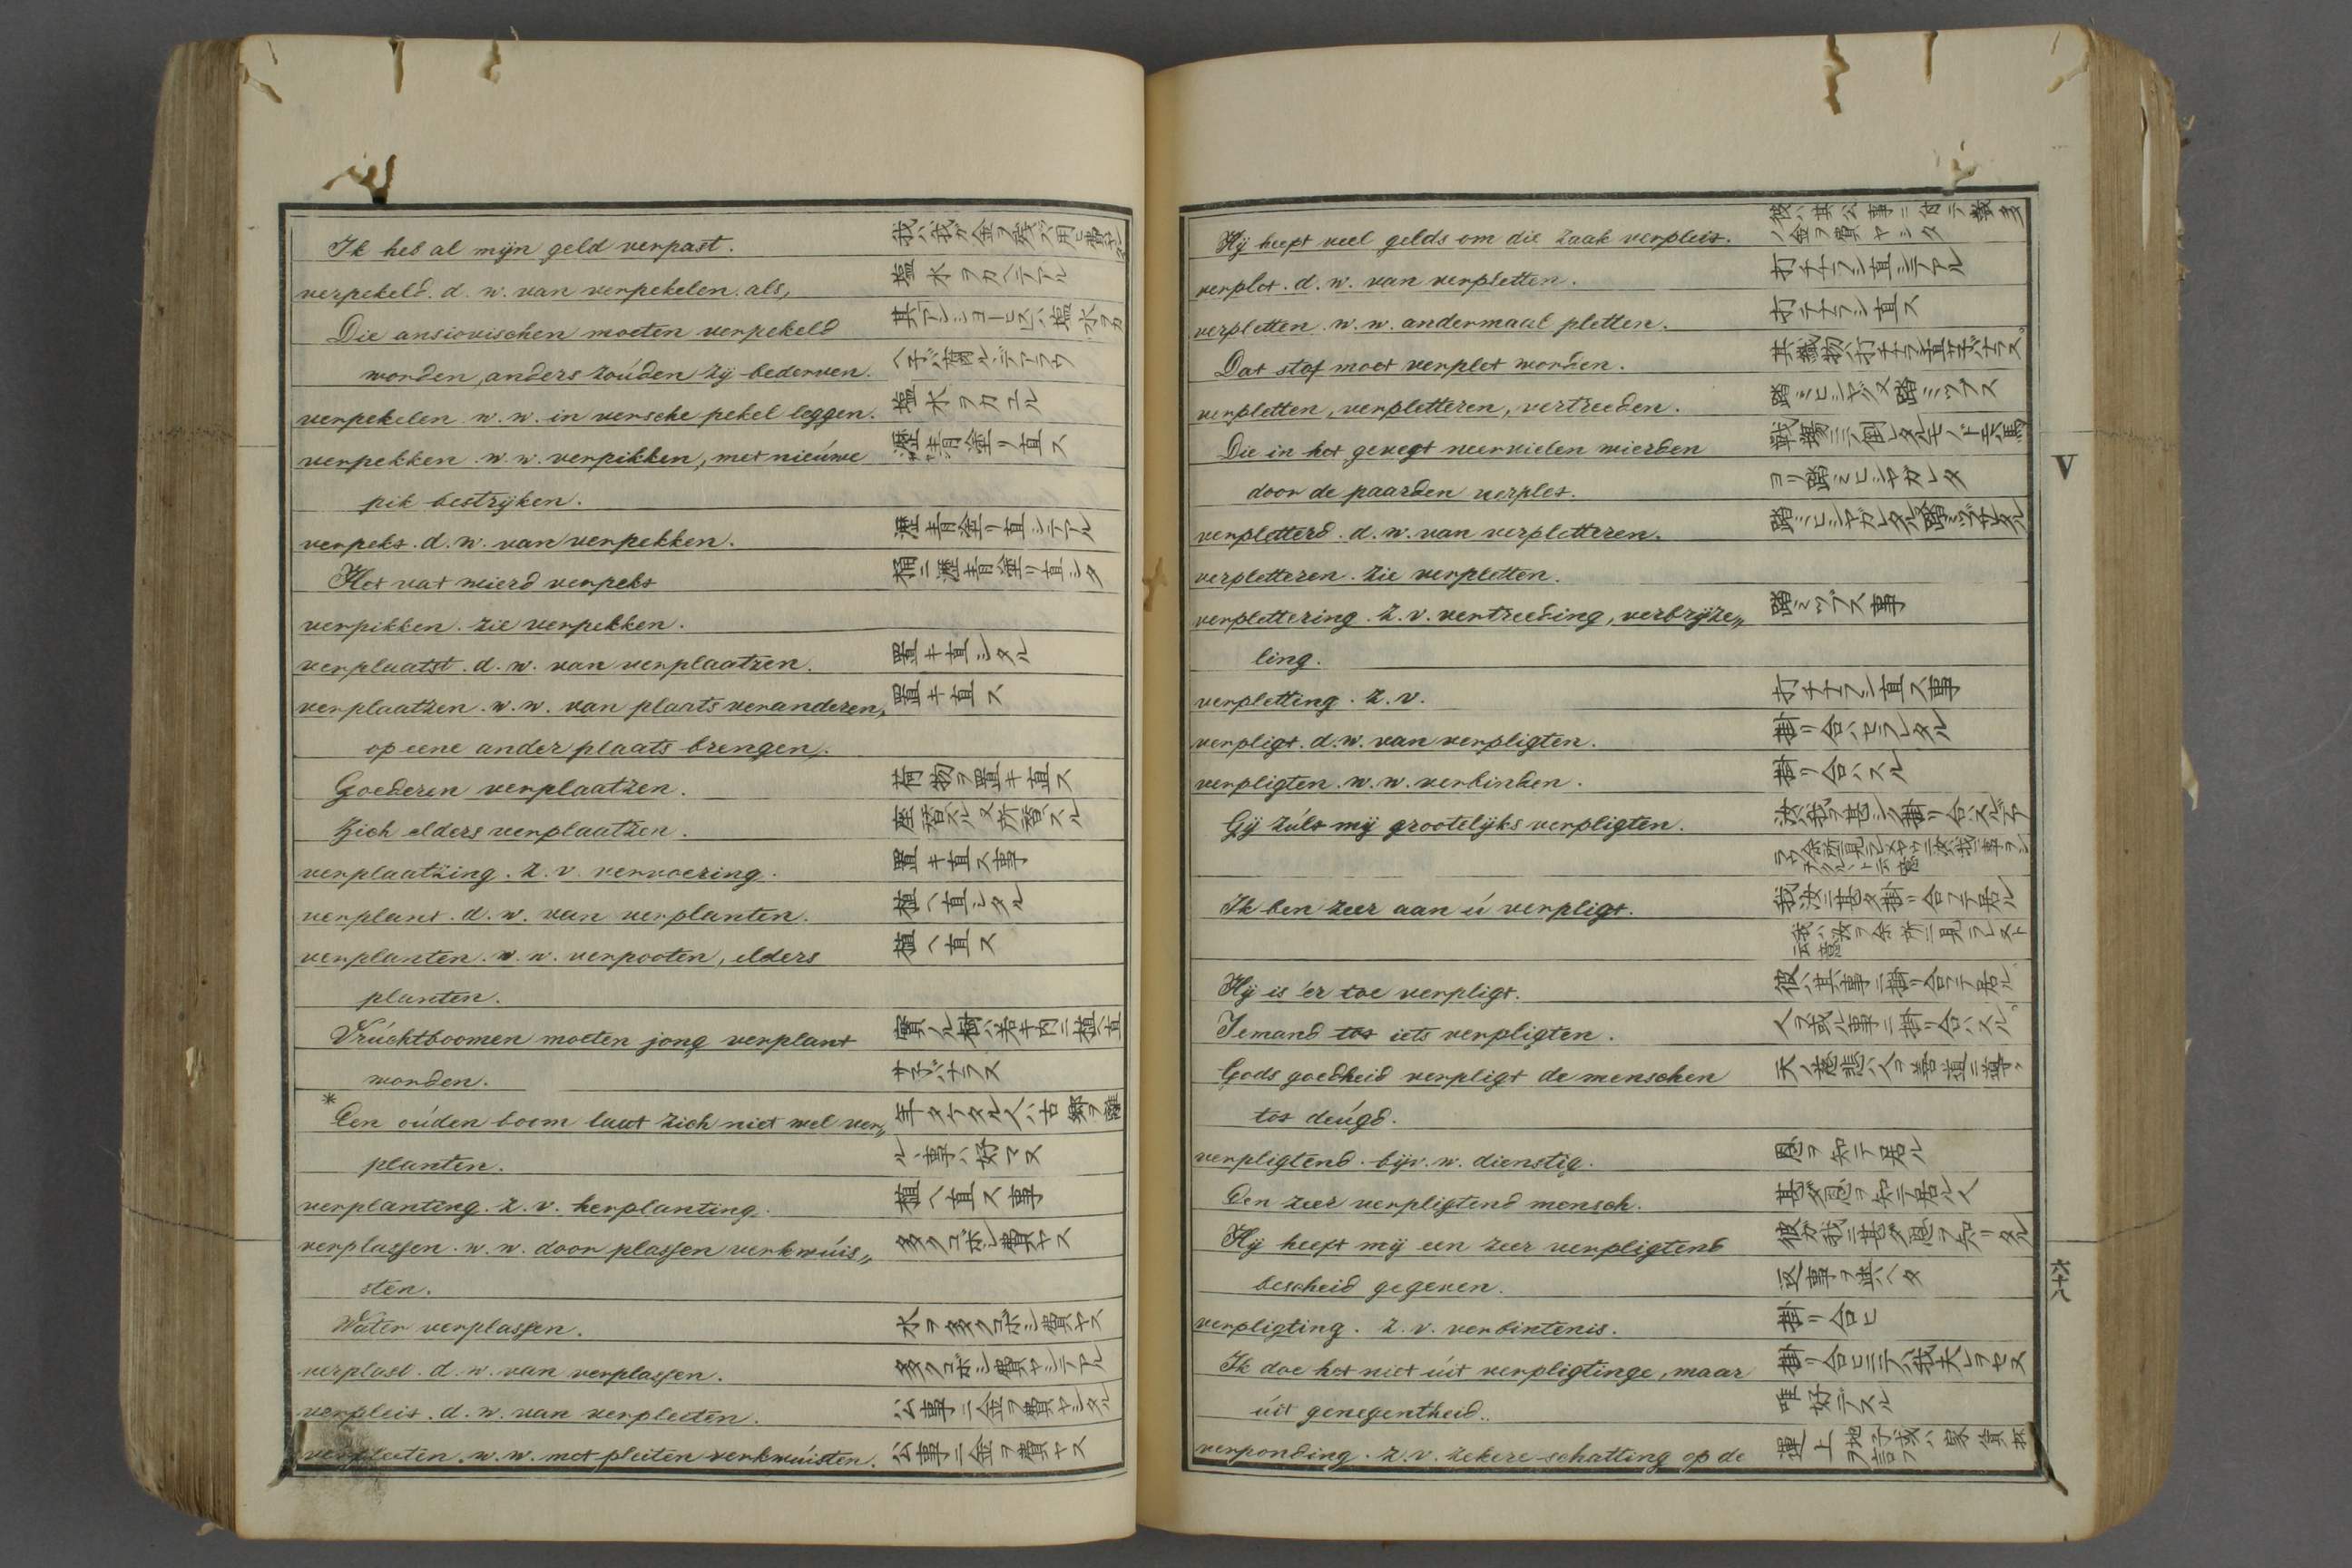 Ik heb al mijn geld verpast.
verpekeld. d. w. van verpekelen. als,
塩水ヲカヘテアル
Die ansiovischen moeten verpekeld
worden, anders zoúden zy bederven.
verpekelen w. w. in versche pekel leggen.
塩水ヲカユル
verpekken. w. w. verpikken, met nieúwe
瀝青塗リ直ス
pik bestrijken.
verpekt. d. w. van verpekken.
瀝青塗リ直シテアル
Het vat wierd verpekt
桶ニ瀝青塗リ直シタ
verpikken. zie verpekken.
verplaatst. d. w. van verplaatzen.
置キ直シタル
verplaatzen. w. w. van plaats veranderen,
置キ直ス
op eene ander plaats brengen.
Goederen verplaatzen.
荷物ヲ置キ直ス
Zich elders verplaatzen.
座替スル又所替スル
verplaatzing. z. v. vervoering.
置キ直ス事
verplant. d. w. van verplanten.
植ヘ直シタル
verplanten. w. w. verpooten, elders
植ヘ直ス
planten.
Vrúchtboomen moeten jong verplant
worden.
* Een oúden boom laat zich niet wel ver„
年タケタル人ハ古郷ヲ離
planten.
ル事ハ好マヌ
verplanting. z. v. herplanting.
植ヘ直ス事
verplassen. w. w. door plassen verkwúis„
多クコボシ費ヤス
sten.
Water verplassen.
水ヲ多クコボシ費ヤス
verplast. d. w. van verplassen.
多クコボシ費ヤシテアル
verpleit. d. w. van verpleiten.
公事ニ金ヲ費ヤシタル
verpleiten. w. w. met pleiten verkwúisten.
公事ニ金ヲ費ヤス
Hij heeft veel gelds om die zaak verpleit.
ノ金ヲ費ヤシタ
verplet. d. w. van verpletten.
打チナラシ直シテアル
verpletten. w. w. andermaal pletten.
打チナラシ直ス
Dat stof moet verplet worden.
verpletten, verpletteren, vertreeden.
踏ミヒシヤグ又踏ミツブス
Die in het gevegt neervielen wierden
door de paarden verplet.
ヨリ踏ミヒシヤガレタ
verpletterd. d. w. van verpletteren.
verpletteren. zie verpletten.
verplettering. z. v. vertreeding, verbrijze„
踏ミツブス事
ling.
verpletting. z. v.
打チナラシ直ス事
verpligt. d. w. van verpligten.
掛リ合ハセラレタル
verpligten. w. w. verbinden.
掛リ合ハスル
Gij zúlt mij grootelijks verpligten.
Ik ben zeer aan ú verpligt.
我汝ニ甚タ掛リ合フテ居ル
Hij is 'er toe verpligt.
彼ハ其事ニ掛リ合テ居ル
Iemand tot iets verpligten.
人ヲ或ル事ニ掛リ合ハスル
Gods goedheid verpligt de menschen
天ノ慈悲ハ人ヲ善道ニ導ク
tot deúgd.
verpligtend. bijv. w. dienstig.
恩ヲ知テ居ル
Een zeer verpligtend mensch.
甚タ恩ヲ知テ居ル人
Hij heeft mij een zeer verpligtend
彼ガ我ニ甚タ恩ヲ知リタル
bescheid gegeven.
返事ヲ與ヘタ
verpligting. z. v. verbintenis.
掛リ合ヒ
Ik doe het niet úit verpligtinge, maar
úit genegentheid.
唯好デスル
verponding. z. v. zekere schatting op de
V
六十八